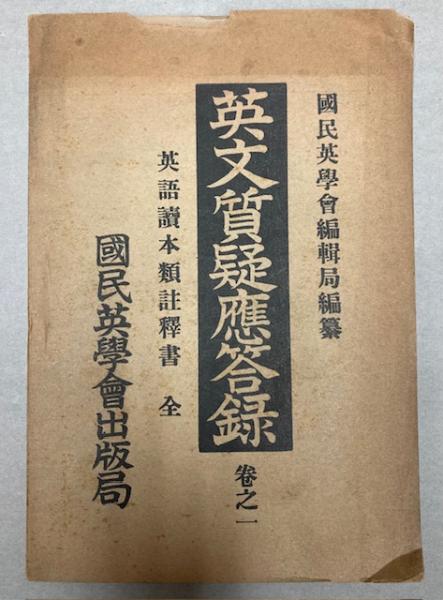 國民英學會編輯局編纂
英文質疑應答録
卷之一
英語讀本類註釋書 全
國民英學會出版局